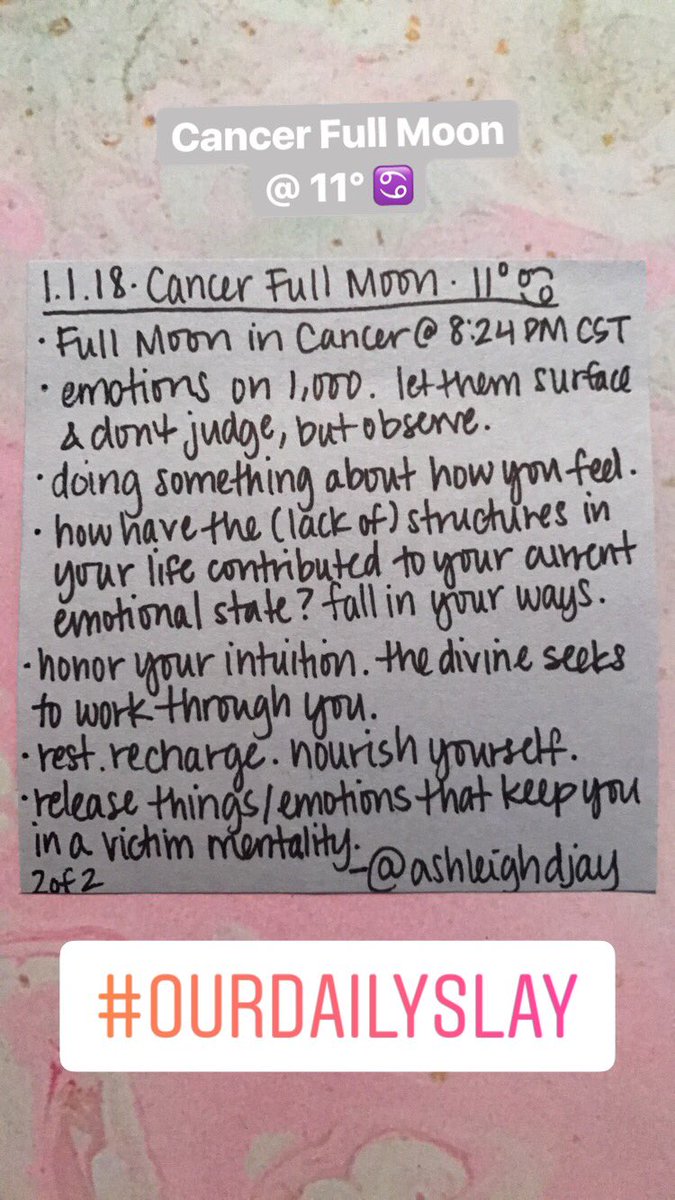 Cancer Full Moon
@ 11° ♋
1.1.18. Cancer Full Moon. 11° ♋
· Full Moon in Cancer @ 8:24 PM CST
· emotions on 1,000. let them surface
& dont judge, but observe.
· doing something about how you feel.
· how have the (lack of) structures in
your life contributed to your current
emotional state? fall in your ways.
· honor your intuition. the divine seeks
to work through you.
· rest. recharge. nourish yourself.
· release things/emotions that keep you
in a victim mentality.
2 of 2 -@ashleighdjay
#OURDAILYSLAY